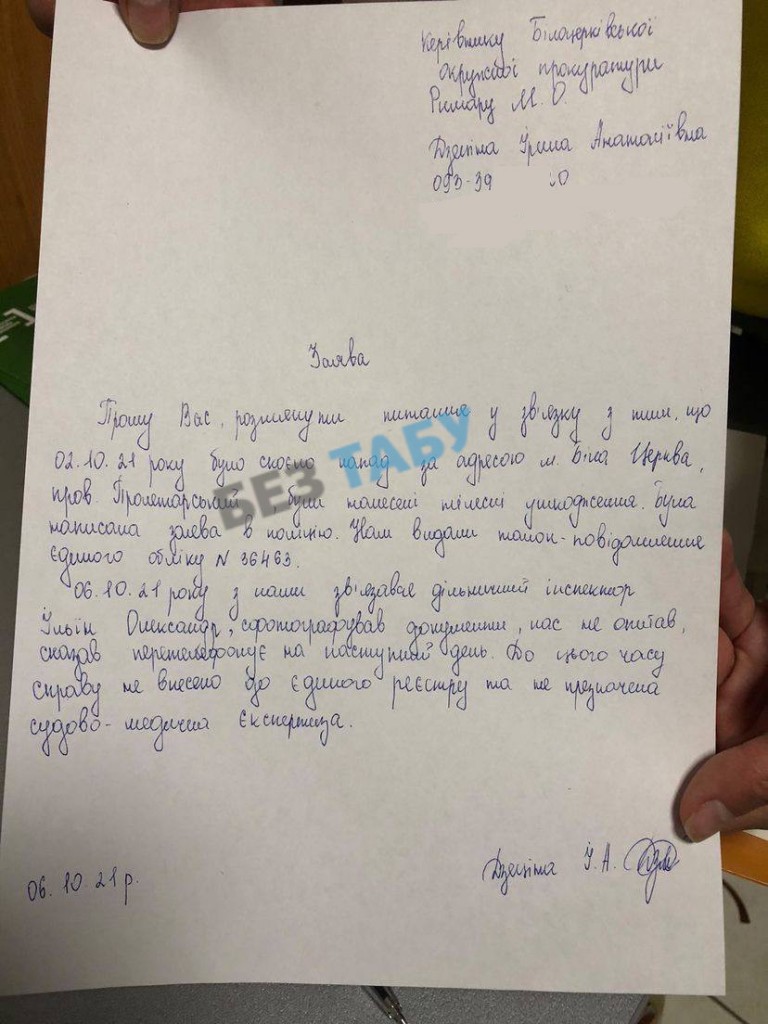 Керівнику Білоцерківської
окружної прокуратури
Римару М. О.
Ірина Анатоліївна
093-39 0
Заява
Прошу Вас, розглянути питання у зв'язку з тим, що
02.10.21 року було скоєно напад за адресою м. Біла Церква,
пров. Пролетарський , були нанесені тілесні ушкодження. Була
написана заява в поліцію. Нам видали талон-повідомлення
єдиного обліку N 36463.
06.10.21 року з нами зв'язався дільничний інспектор
Ільїн Олександр, сфотографував документи, нас не опитав,
сказав перетелефонує на наступний день. До цього часу
справу не внесено до єдиного реєстру та не призначена
судово-медична експертиза.
06.10.21р.
І. А.
БЕЗ ТАБУ